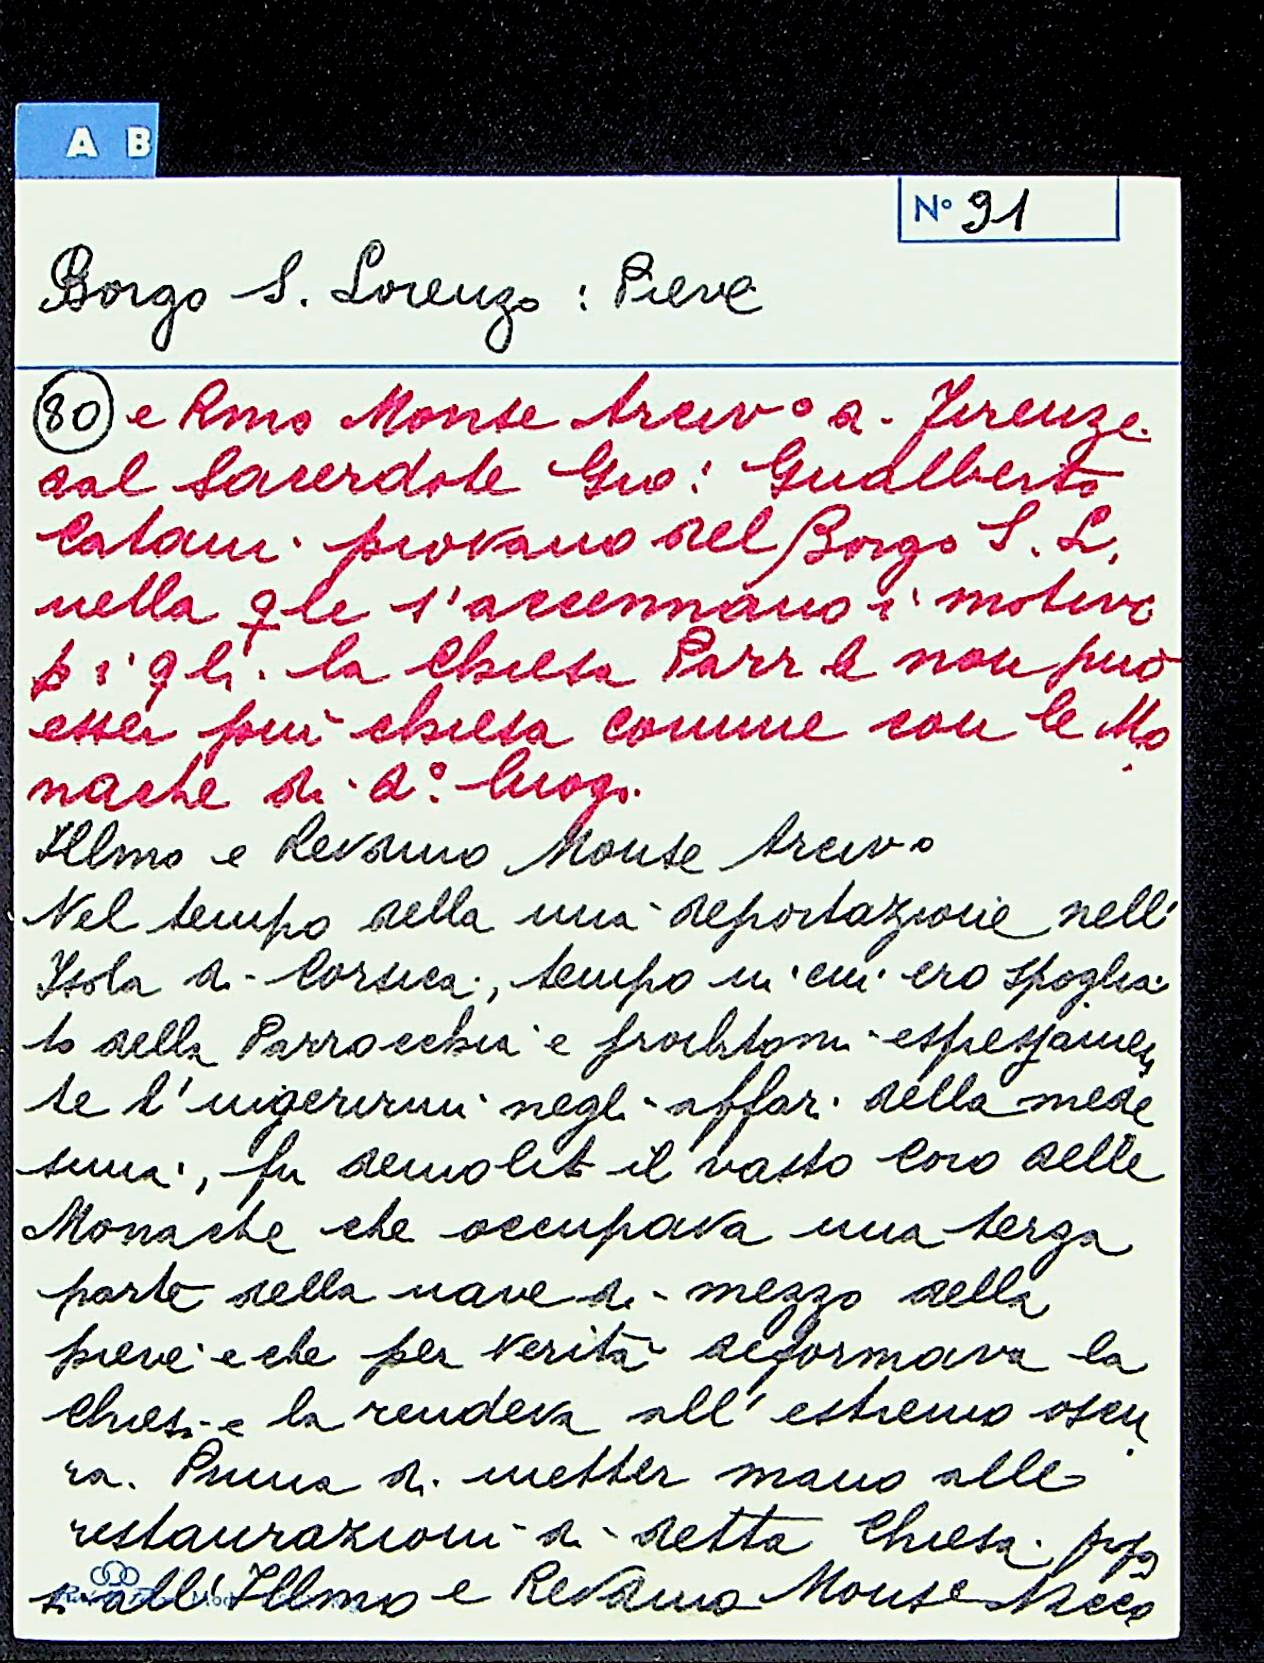 A B
N° 91
Borgo S. Lorenzo : Pieve
80 e Rmo Monse Arcivo di Firenze
dal Sacerdote Gio: Gualberto
Catani piovano del Borgo S. L.
nella qle s'accennano i motivi
p i qli la Chiesa Parrle non può
esser più chiesa comune con le Mo
nache di do luogo.
Illmo e Revdmo Monse Arcivo
Nel tempo della mia deportazione nell'
Isola di Corsica, tempo in cui ero spoglia
to della Parrocchia e proibitomi espressamen
te l'ingerirmi negli affari della mede
sima, fu demolito il vasto Coro delle
Monache che occupava una terza
parte della nave di mezzo della
pieve e che per verità deformava la
Chiesa e la rendeva all'estremo oscu
ra. Prima di metter mano alle
restaurazioni di detta Chiesa
all'Illmo e Revdmo Monse